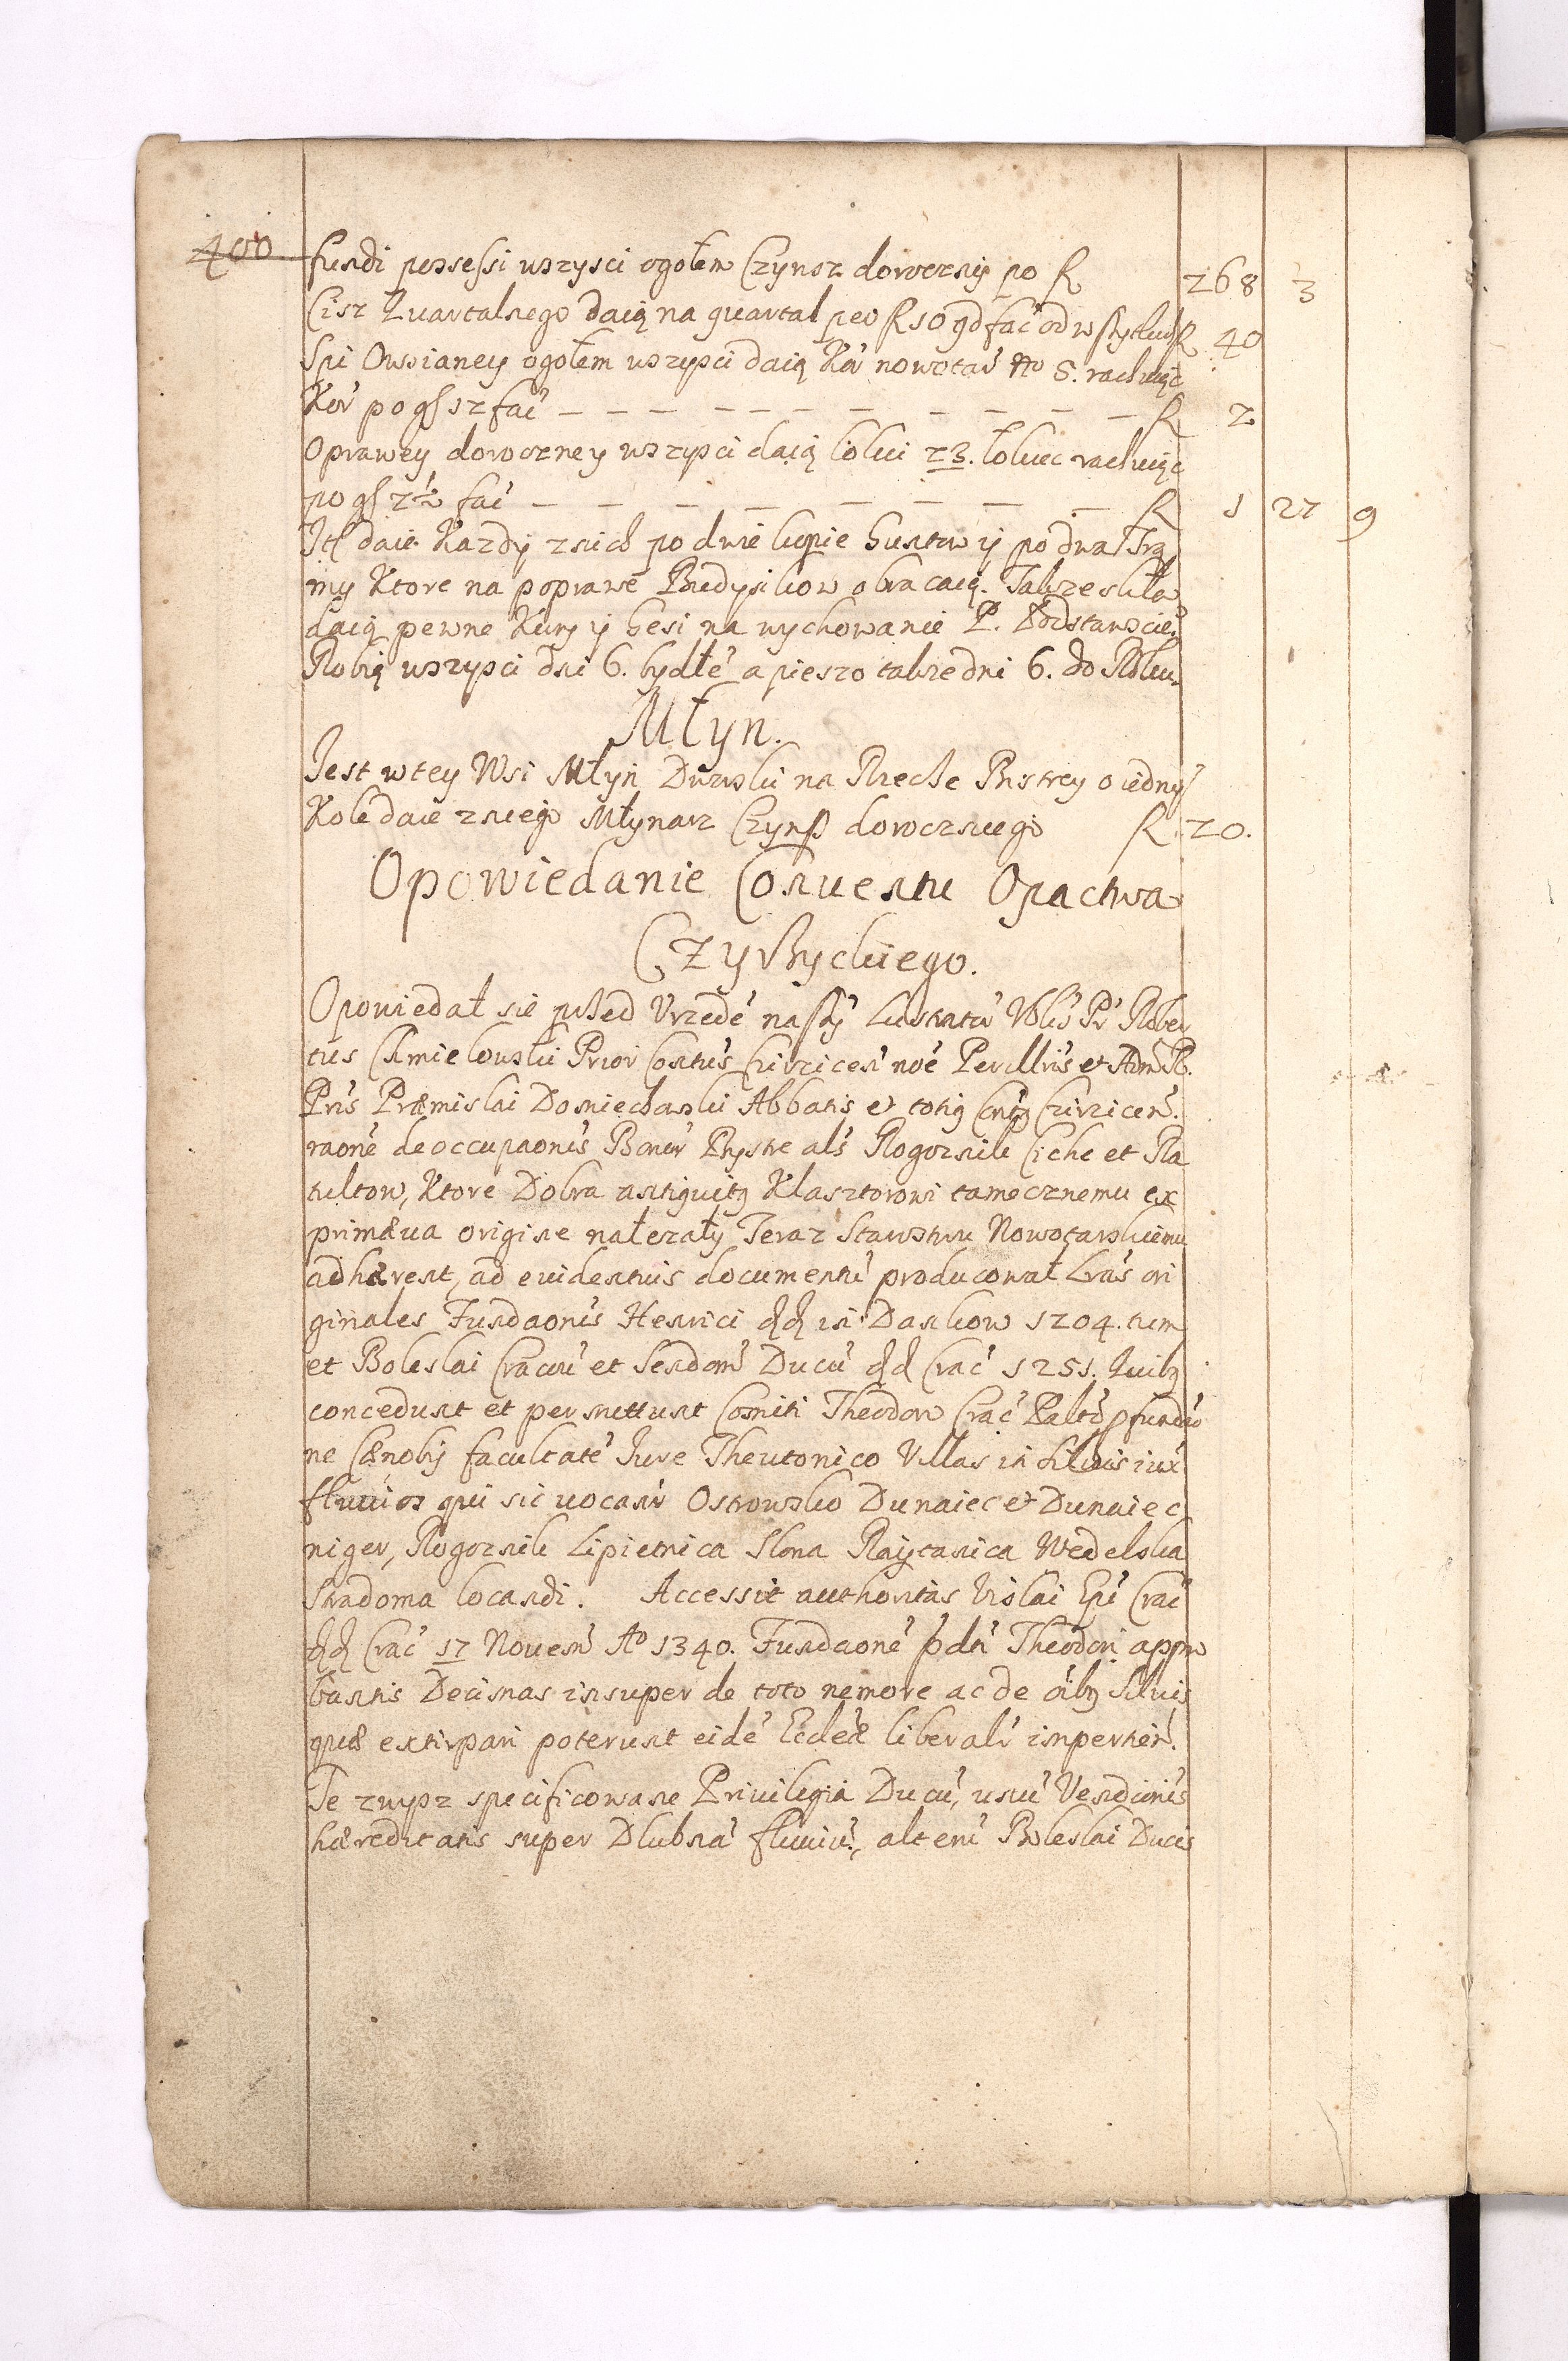 400
fundi possessi wszysci ogołem Czynsz doroczny po R 268 3
Czisz Quartalnego daią na quartal po R 10 qd fac od wszytkich R 40
Spi Owsianey ogołem wszysci daią Kor nowotar No 5. rachuiąc
Kor po gl 12 fac — — — — — — — — — — R 2
Oprawey doroczney wszysci daią łokci 23. łokiec rachuiąc
po gl 2½ fac — — — — — — — — R 1 27 9
It daie Kazdy z nich po dwie kupie Guntow y po dwa Tra
my Ktore na poprawe Budynkow obracaią. Takze
daią pewne Kury y Gesi na wychowanie P. Podstarosciem
Robią wszysci dni 6. bydłe a pieszo takze dni 6. do Roku
Młyn.
Jest w tey Wsi Młyn Dworski na Rzeche Bystrey o iedny
Kole daie z niego Młynarz Czynsz dorocznego R 20.
Opowiedanie Conuentu Opactwa
Czyrzyckiego.
Opowiedał sie przed Vrzede naszy Lustrato Vblis Pr Rober
tus Chmielowski Prior Contus Czirzicen noe Perillris et Adm R.
Pris Præmislai Domiechowski Abbatis et totiq Contq Czirzicen.
raone de occupaonis Bonor Bystre als Rogoznik Ciche et Ra
tultow, Ktore Dobra antiquitq Klasztorowi tamecznemu ex
primæua origine należały Teraz Starostwu Nowotarskiemu
adhærent, ad euidentius documentu producował Lras ori
ginales Fundaonis Henrici dd in Dankow 1204. tum
et Boleslai Cracou et Sendom Ducu dd Crac 1251. Quibq
concedunt et permittunt Comiti Theodoro Crac Palto p fundao
ne Cænobij facultate Jure Theutonico Villas in siluis iux
fluuios qui sic uocanr Ostrowsko Dunaiec et Dunaiec
niger, Rogoznik Lipietnica Slona Raytanica Wedelska
Stradoma locandi. Accessit authoritas Vislai Epi Crac
dd Crac 17 Nouem Ao 1340. Fundaone pdti Theodori appro
bantis Decimas insuper de toto nemore ac de oibq siluis
quæ extirpari poterunt eide Eccleæ liberalr impertien.
Te zwysz specificowane Priuilegia Ducu, unu Vendionis
hæreditatis super Dlubna fluuiu, alteru Boleslai Ducis